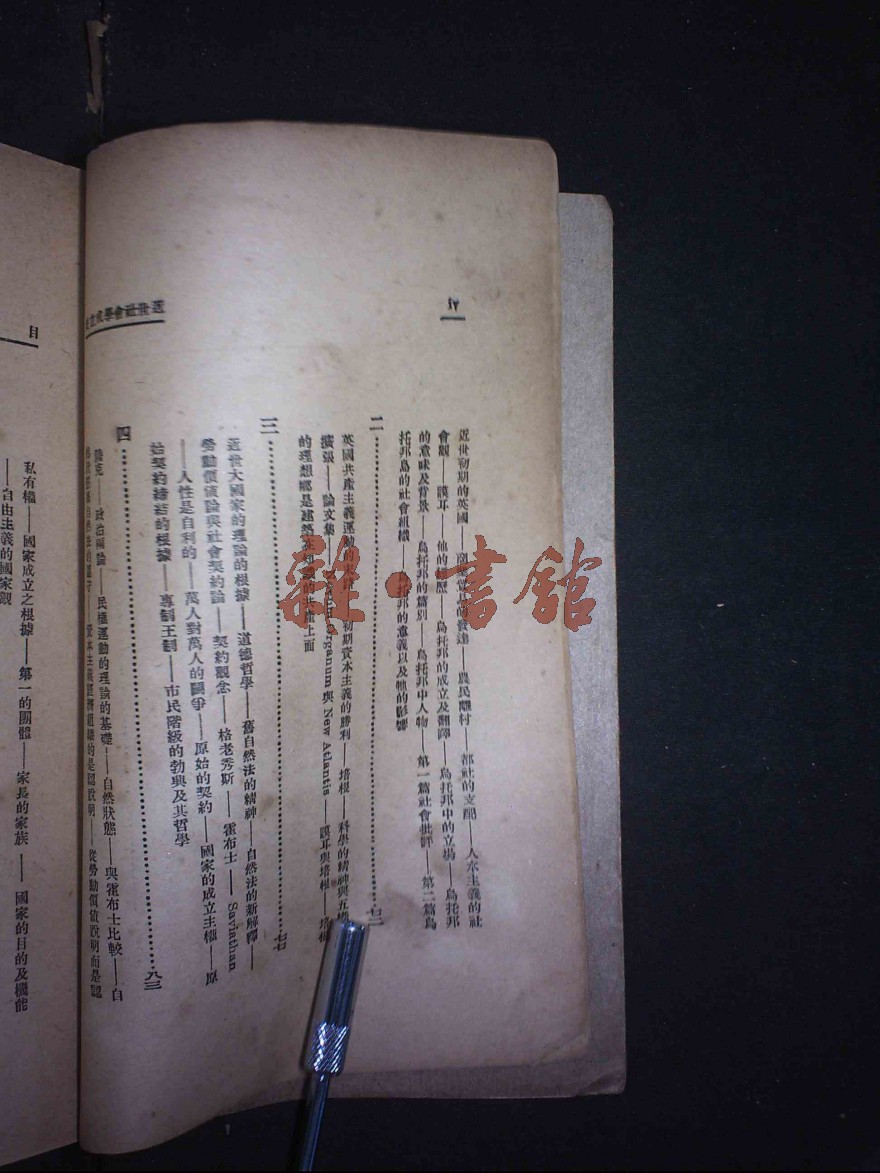 近世初期的英國——商——的發達——農民離村——都社的支配——人水主義的社
會觀——謨耳——他的——歷——烏托邦的成立及翻譯——烏托邦中的立場——烏托邦
的意味及背景——烏托邦的篇別——烏托邦中人物——第一篇社會批評——第二篇烏
托邦島的社會組織——烏托邦的意義以及牠的影響
二
英國共產主義運動的——初期資本主義的勝利——培根——科學的精神與
擴張——論文集——Organum 與 New Atlantis——謨耳與培根——培根
的理想鄉是建築在——的共產上面
三 七〇
近世大國家的理論的根據——道德哲學——舊自然法的精神——自然法的新解釋——
勞動價値論與社會契約論——契約觀念——格老秀斯——霍布士——Saviathan
——人性是自利的——萬人對萬人的鬪爭——原始的契約——國家的成立主權——原
始契約締結的根據——專制王制——市民階級的勃興及其哲學
四 八三
陸克——政治兩論——民權運動的理論的基礎——自然狀態——與霍布士比較——自
資本主義經濟組織的是認說明——從勞動價値說明而是認
目
私有權——國家成立之根據——第一的團體——家長的家族——國家的目的及機能
——自由主義的國家觀
雜·書館